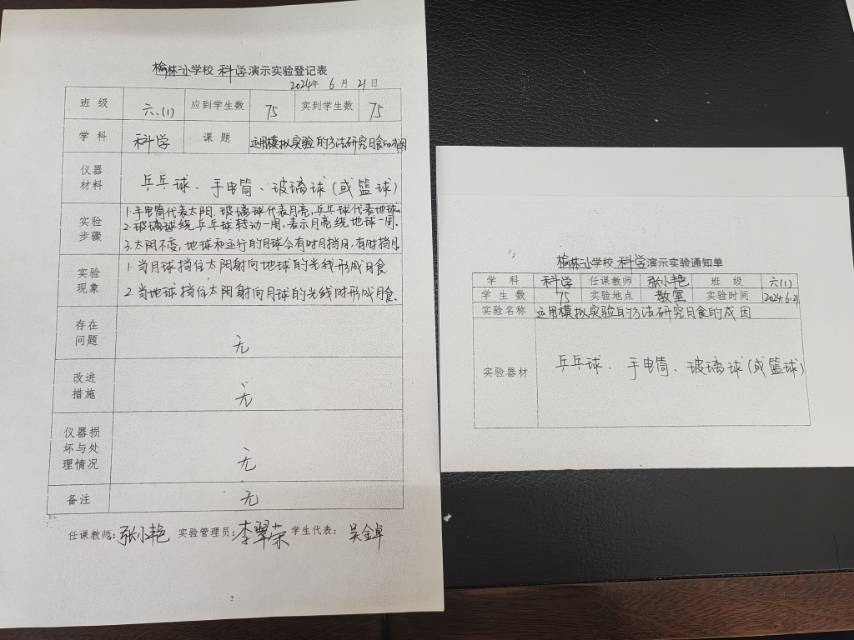 榆林小学校 科学演示实验登记表
2024年 6月 21日
班级 六.(1) 应到学生数 75 实到学生数 75
学科 科学 课题 运用模拟实验的方法研究日食的成因
仪器材料 乒乓球、手电筒、玻璃球(或篮球)
实验步骤 1.手电筒代表太阳.玻璃球代表月亮,乒乓球代表地球.
2.玻璃球绕乒乓球转动一周,表示月亮绕地球一周.
3.太阳不变,地球和运行的月球会有时月挡日,有时挡月
实验现象 1.当月球挡住太阳射向地球的光线形成日食
2.当地球挡住太阳射向月球的光线时形成月食.
存在问题 无
改进措施 无
仪器损坏与处理情况 无
备注 无
任课教师:张小艳 实验管理员:李翠荣 学生代表:吴金卓
榆林小学校 科学演示实验通知单
学科 科学 任课教师 张小艳 班级 六(1)
学生数 75 实验地点 教室 实验时间 2024.6.21
实验名称 运用模拟实验的方法研究日食的成因
实验器材 乒乓球、手电筒、玻璃球(或篮球)